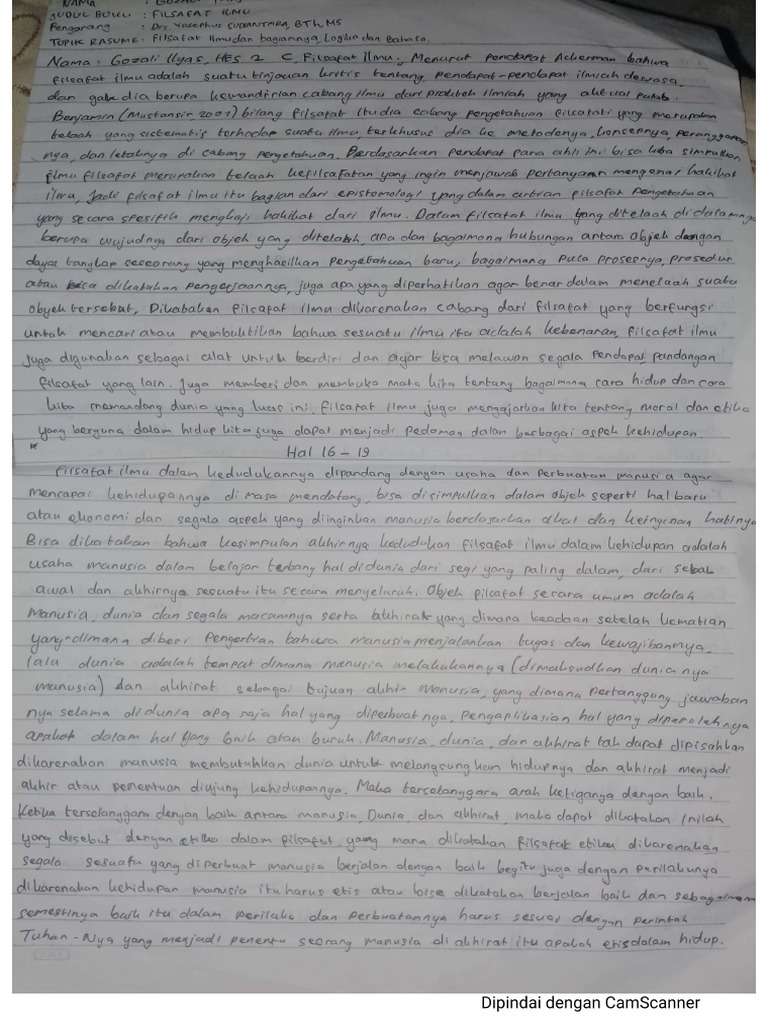 NAMA : GOZALI
JUDUL BUKU : FILSAFAT ILMU
Pengarang : Drs Yosephus SUDIANTARA, BTh, MS
TOPIK RASUME : Filsafat Ilmu dan bagiannya, Logika dan Bahasa.
Nama : Gozali Ilyas, HES 2 C, Filsafat Ilmu, Menurut Pendapat Ackerman bahwa
filsafat ilmu adalah suatu tinjauan kritis tentang pendapat-pendapat ilmiah dewasa,
dan dia berupa kemandirian cabang ilmu dari praktek ilmiah yang aktual
Benjamin (Mustansir, 2001) bilang filsafat itu dia cabang pengetahuan filsafati yang merupakan
telaah yang sistematis terhadap suatu ilmu, terkhusus dia ke metodenya, konsepnya, peranggapan
nya, dan letaknya di cabang pengetahuan. Berdasarkan pendapat para ahli ini bisa kita simpulkan,
ilmu filsafat merupakan telaah kefilsafatan yang ingin menjawab pertanyaan mengenai hakikat
ilmu, Jadi filsafat ilmu itu bagian dari epistomologi yang dalam artian filsafat Pengetahuan
yang secara spesifik mengkaji hakikat dari ilmu. Dalam filsafat ilmu yang ditelaah di dalamnya
berupa wujudnya dari objek yang ditelaah, apa dan bagaimana hubungan antara objek dengan
daya tangkap seseorang yang menghasilkan Pengetahuan baru, bagaimana pula prosesnya, prosedur
atau bisa dikatakan pengerjaannya, juga apa yang diperhatikan agar benar dalam menelaah suatu
obyek tersebut, Dikatakan filsafat ilmu dikarenakan cabang dari filsafat yang berfungsi
untuk mencari atau membuktikan bahwa sesuatu ilmu itu adalah kebenaran, filsafat ilmu
juga digunakan sebagai alat untuk berdiri dan agar bisa melawan segala pendapat, pandangan
filsafat yang lain. Juga memberi dan membuka mata kita tentang bagaimana cara hidup dan cara
kita memandang dunia yang luas ini. Filsafat ilmu juga mengajarkan kita tentang moral dan etika
yang berguna dalam hidup kita juga dapat menjadi pedoman dalam berbagai aspek kehidupan.
Hal 16 - 19
Filsafat ilmu dalam kedudukannya dipandang dengan usaha dan Perbuatan manusia agar
mencapai kehidupannya di masa mendatang, bisa disimpulkan dalam objek seperti hal baru
atau ekonomi dan segala aspek yang diinginkan manusia berdasarkan akal dan keinginan hatinya
Bisa dikatakan bahwa kesimpulan akhirnya kedudukan filsafat ilmu dalam kehidupan adalah
usaha manusia dalam belajar tentang hal di dunia dari segi yang paling dalam, dari sebab
awal dan akhirnya sesuatu itu secara menyeluruh. Objek filsafat secara umum adalah
Manusia, dunia dan segala macamnya serta akhirat yang dimana keadaan setelah kematian
yang dimana diberi Pengertian bahwa manusia menjalankan tugas dan kewajibannya.
lalu dunia adalah tempat dimana manusia melakukannya (dimaksudkan dunia nya
manusia) dan akhirat sebagai tujuan akhir manusia, yang dimana Pertanggung jawaban
nya selama di dunia apa saja hal yang diperbuat nya, Pengaplikasian hal yang diperolehnya
apakah dalam hal yang baik atau buruk. Manusia, dunia, dan akhirat tak dapat dipisahkan
dikarenakan manusia membutuhkan dunia untuk melangsungkan hidupnya dan akhirat menjadi
akhir atau penentuan diujung kehidupannya. Maka terselanggara arah ketiganya dengan baik.
Ketika terselanggara dengan baik antara manusia, Dunia, dan akhirat, maka dapat dikatakan Inilah
yang disebut dengan etika dalam filsafat, yang mana dikatakan filsafat etika dikarenakan
segala sesuatu yang diperbuat manusia berjalan dengan baik begitu juga dengan perilakunya
dikarenakan kehidupan manusia itu harus etis atau bisa dikatakan berjalan baik dan sebagaimana
semestinya baik itu dalam perilaku dan Perbuatannya harus sesuai dengan perintah
Tuhan-Nya yang menjadi penentu seorang manusia di akhirat itu apakah etis dalam hidup.
Dipindai dengan CamScanner